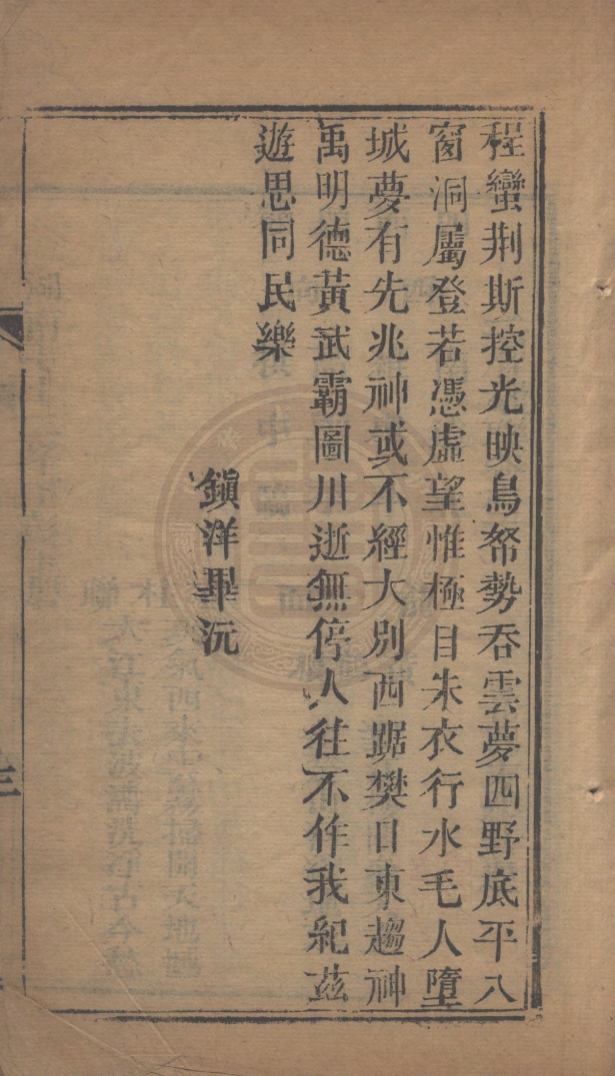 程蠻荆斯控光映鳥帑勢吞雲夢四野底平八
窗洞屬登若憑虛望惟極目朱衣行水毛人墮
城夢有先兆神或不經大別西踞樊口東趨神
禹明德黃武霸圖川逝無停人往不作我紀茲
遊思同民樂
鎭洋畢沅